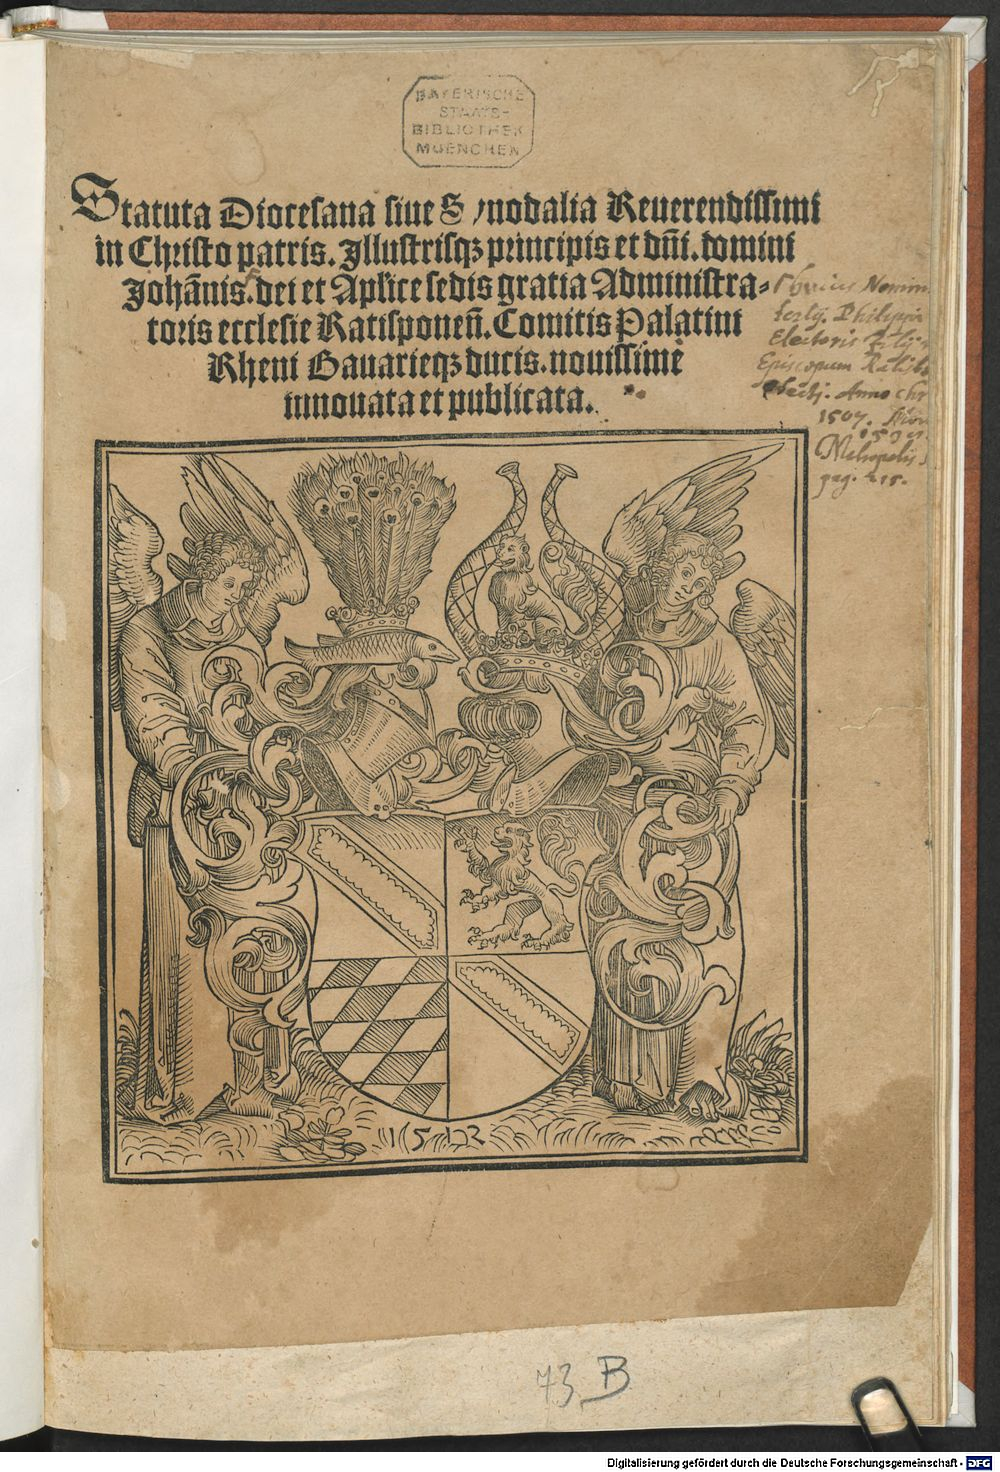 BAYERISCHE
STAATS-
BIBLIOTHEK
MUENCHEN
Statuta Diocesana siue Synodalia Reuerendissimi
in Christo patris. Illustrisqꝫ principis et dñi. domini
Johãnis. dei et Aplice sedis gratia Administra-
toris ecclesie Ratisponeñ. Comitis Palatini
Rheni Bauarieqꝫ ducis. nouissime
innouata et publicata.
huius Nomin
tertij. Philippi
Electoris
Episcopum Ratisb
electi. Anno Chr
1507.
Metropolis
pag. 215.
1512
73 B
Digitalisierung gefördert durch die Deutsche Forschungsgemeinschaft - DFG